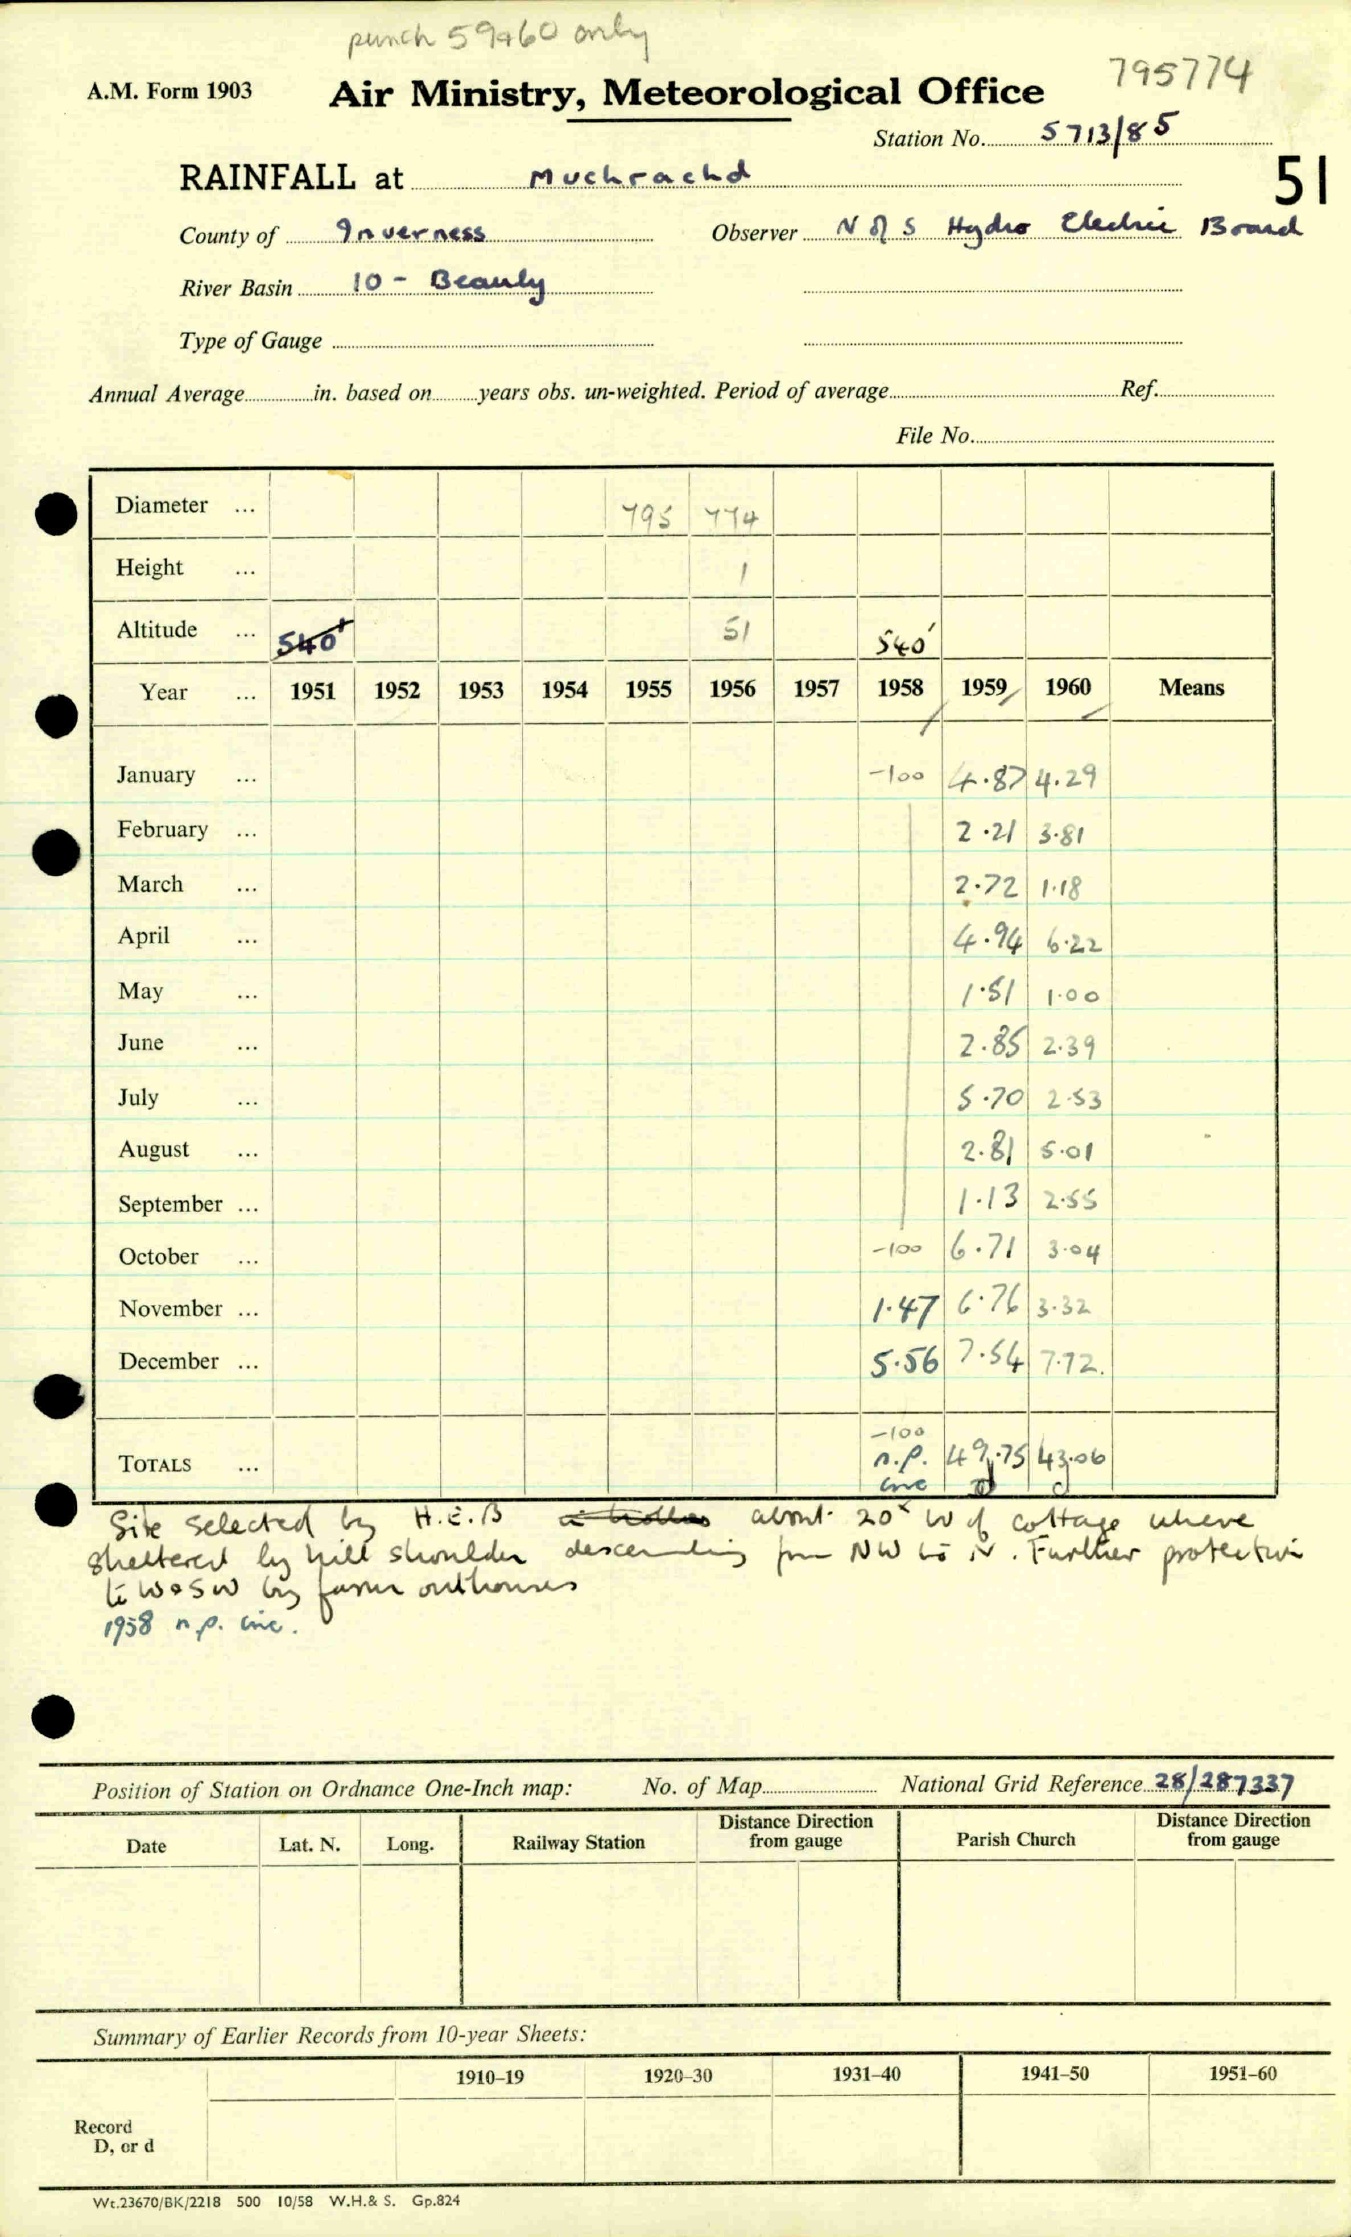 punch 59+60 only
795774
A.M. Form 1903 Air Ministry, Meteorological Office
Station No. 5713/85
RAINFALL at Muchrachd 51
County of Inverness Observer N of S Hydro Electric Board
River Basin 10 - Beauly
Type of Gauge
Annual Average in. based on years obs. un-weighted. Period of average Ref.
File No.
Diameter ... 795 774
Height ... 1
Altitude ... 540' 51 540'
Year ... 1951 1952 1953 1954 1955 1956 1957 1958 1959 1960 Means
January ... -100 4.87 4.29
February ... 2.21 3.81
March ... 2.72 1.18
April ... 4.94 6.22
May ... 1.51 1.00
June ... 2.85 2.39
July ... 5.70 2.53
August ... 2.81 5.01
September ... 1.13 2.55
October ... -100 6.71 3.04
November ... 1.47 6.76 3.32
December ... 5.56 7.54 7.72.
-100
TOTALS ... n.p. 49.75 43.06
inc d d
Site selected by H.E.B about 20x W of cottage where
sheltered by hill shoulder descending from NW to N. Further protection
to W & SW by farm outhouses
1958 n.p. inc.
Position of Station on Ordnance One-Inch map: No. of Map National Grid Reference 28/287337
Date Lat. N. Long. Railway Station Distance Direction from gauge Parish Church Distance Direction from gauge
Summary of Earlier Records from 10-year Sheets:
1910–19 1920–30 1931–40 1941–50 1951–60
Record
D, or d
Wt.23670/BK/2218 500 10/58 W.H.& S. Gp.824